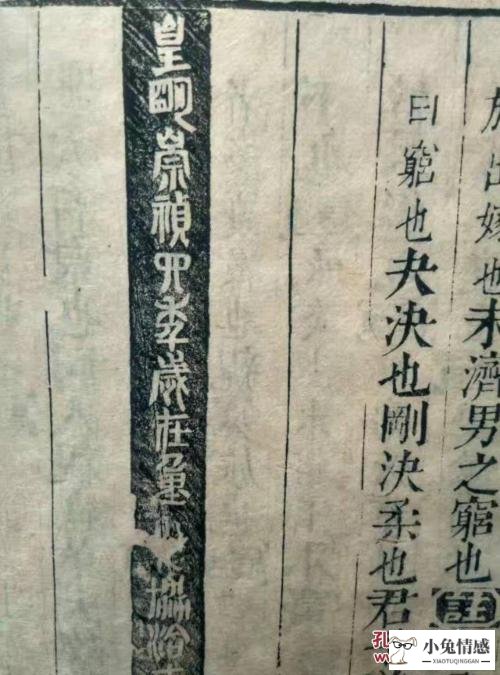 出嫁也未濟男之窮也
曰窮也夬決也剛決柔也君
皇明崇禎四秊歲在重協洽
孔
小兔情感
XIAOTUQINGGAN